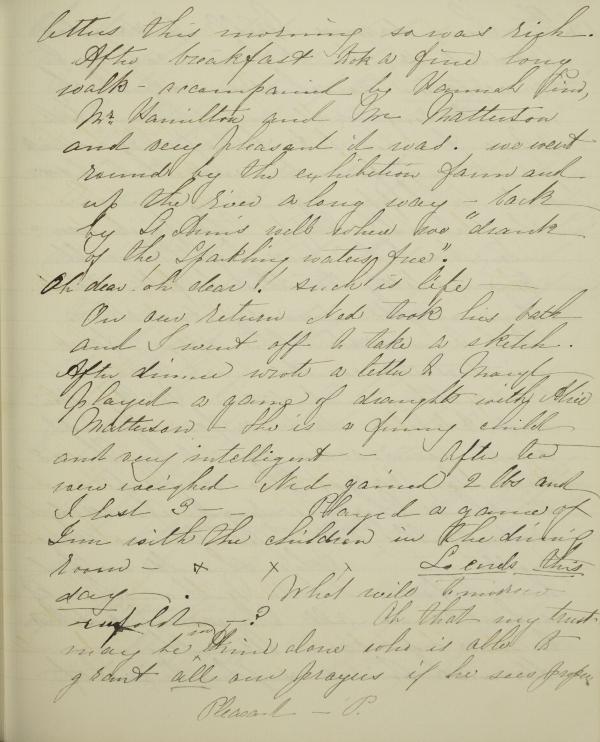 letters this morning so was rich.
After breakfast took a fine long
walk - accompanied by Hannah
Mr. Hamilton and Mr Matterson
and very pleasant it was. we went
round by the exhibition farm and
up the river a long way - back
by St Ann's well where we "drank
of the sparkling waters free".
Oh dear! oh dear! such is life -
On our return Ned took his bath
and I went off to take a sketch.
After dinner wrote a letter to Mary
Played a game of draughts with Alice
Matterson - she is a funny child
and very intelligent - After tea
were weighed Ned gained 2 lbs and
I lost 3 - - Played a game of
with the children in the dining
room - x x x So ends this
day. What will tomorrow
unfold - ?  Oh that my trust
may be in Him alone who is able to
grant all our prayers if he sees proper
Pleasant - P.